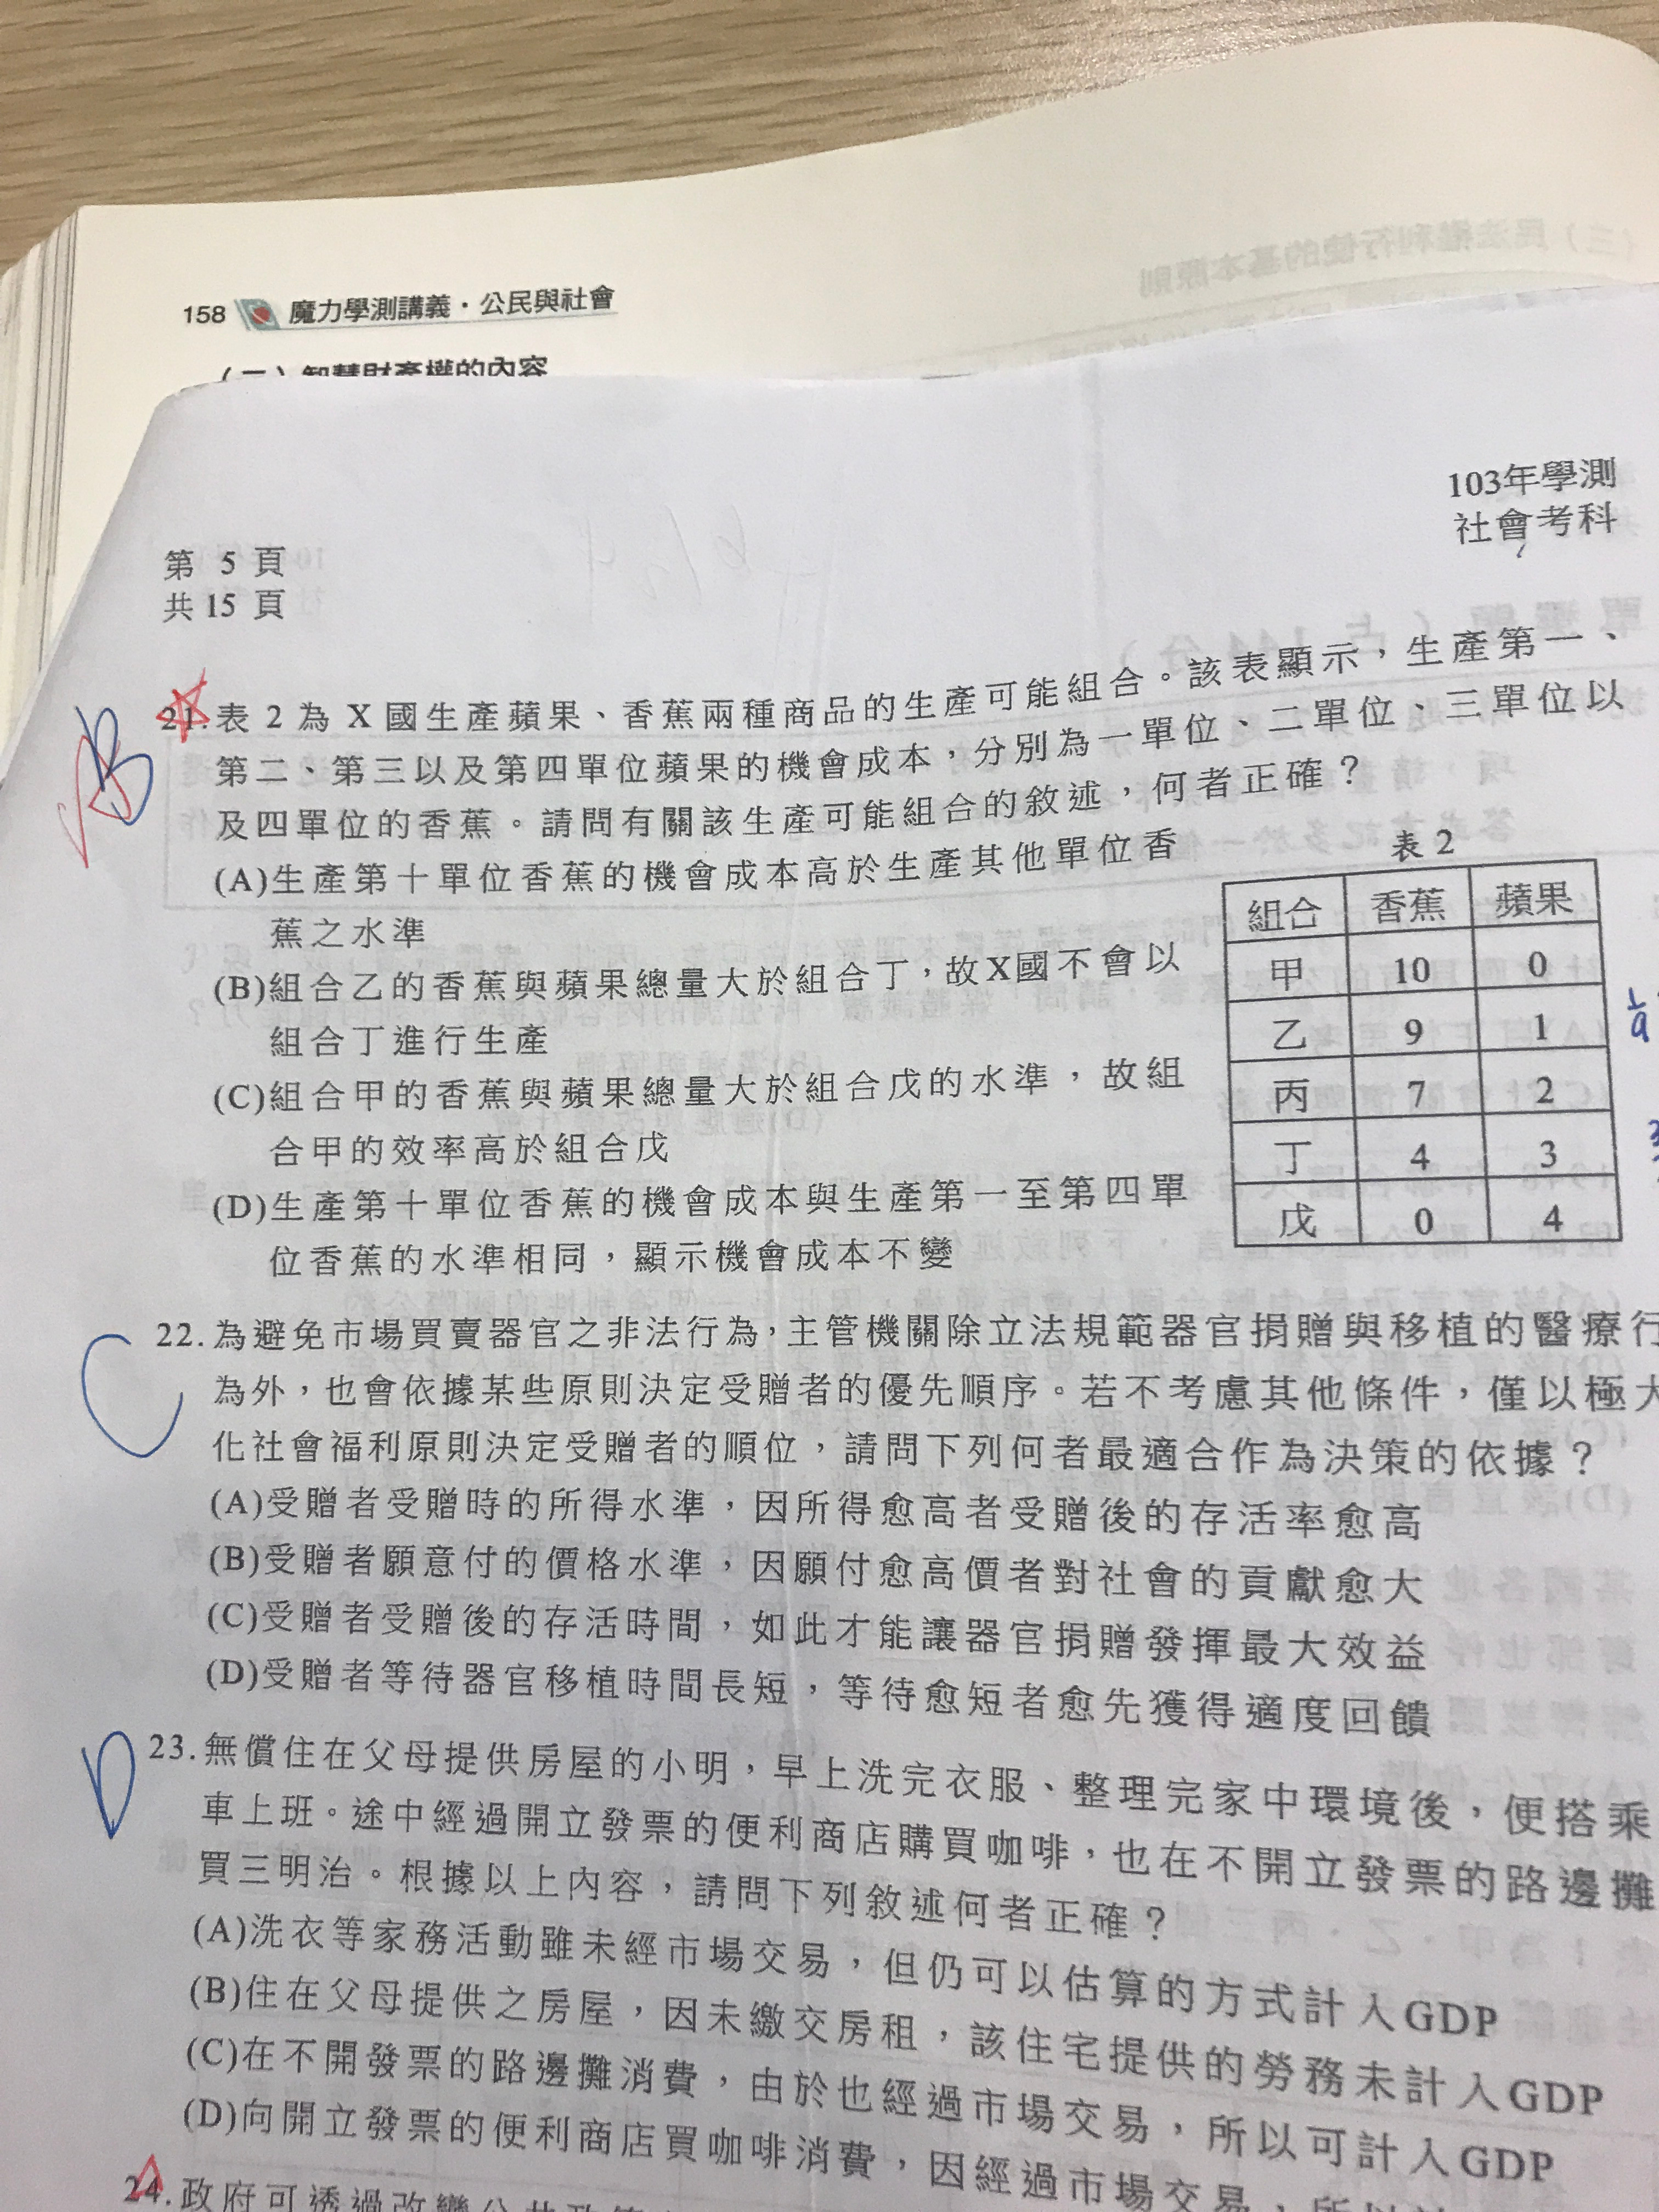 158 魔力學測講義・公民與社會
（二）智慧財產權的內容
103年學測
社會考科
第 5 頁
共 15 頁
B
21.表 2 為 X 國生產蘋果、香蕉兩種商品的生產可能組合。該表顯示，生產第一、
第二、第三以及第四單位蘋果的機會成本，分別為一單位、二單位、三單位以
及四單位的香蕉。請問有關該生產可能組合的敘述，何者正確？
(A)生產第十單位香蕉的機會成本高於生產其他單位香
蕉之水準
(B)組合乙的香蕉與蘋果總量大於組合丁，故X國不會以
組合丁進行生產
(C)組合甲的香蕉與蘋果總量大於組合戊的水準，故組
合甲的效率高於組合戊
(D)生產第十單位香蕉的機會成本與生產第一至第四單
位香蕉的水準相同，顯示機會成本不變
表 2
組合 香蕉 蘋果
甲 10 0
乙 9 1
丙 7 2
丁 4 3
戊 0 4
C
22.為避免市場買賣器官之非法行為，主管機關除立法規範器官捐贈與移植的醫療行
為外，也會依據某些原則決定受贈者的優先順序。若不考慮其他條件，僅以極大
化社會福利原則決定受贈者的順位，請問下列何者最適合作為決策的依據？
(A)受贈者受贈時的所得水準，因所得愈高者受贈後的存活率愈高
(B)受贈者願意付的價格水準，因願付愈高價者對社會的貢獻愈大
(C)受贈者受贈後的存活時間，如此才能讓器官捐贈發揮最大效益
(D)受贈者等待器官移植時間長短，等待愈短者愈先獲得適度回饋
D
23.無償住在父母提供房屋的小明，早上洗完衣服、整理完家中環境後，便搭乘
車上班。途中經過開立發票的便利商店購買咖啡，也在不開立發票的路邊攤
買三明治。根據以上內容，請問下列敘述何者正確？
(A)洗衣等家務活動雖未經市場交易，但仍可以估算的方式計入GDP
(B)住在父母提供之房屋，因未繳交房租，該住宅提供的勞務未計入GDP
(C)在不開發票的路邊攤消費，由於也經過市場交易，所以可計入GDP
(D)向開立發票的便利商店買咖啡消費，因經過市場交易，所以
24.政府可透過改變公共政策